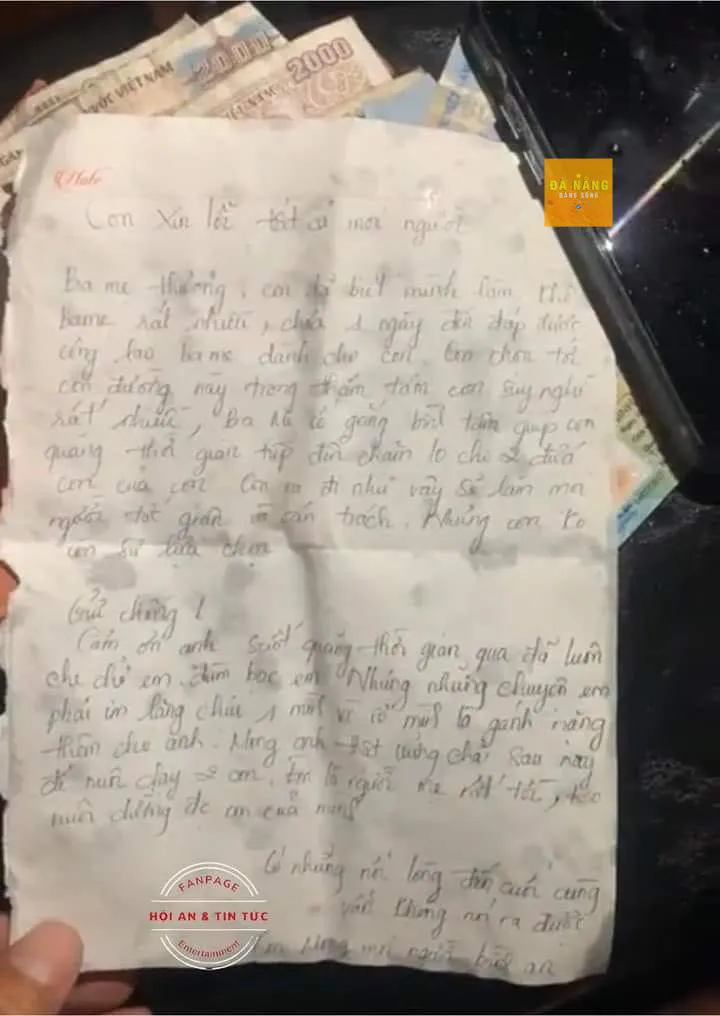 2000
NƯỚC VIỆT NAM
2000
VIỆT NAM
ĐÀ NẴNG
ĐÁNG SỐNG
Con xin lỗi tất cả mọi người
Ba mẹ thương, con đã biết mình làm khổ
Bamẹ rất nhiều, chưa 1 ngày đền đáp được
công lao ba mẹ dành cho con. Con chọn tới
con đường này trong thâm tâm con suy nghĩ
rất nhiều, Ba Mẹ cố gắng giúp con
quãng thời gian tiếp đến chăm lo cho 2 đứa
con của con Con ra đi như vậy sẽ làm mọi
người tức giận và oán trách. Nhưng con ko
còn sự lựa chọn
Gửi chồng !
Cảm ơn anh suốt quãng thời gian qua đã luôn
che chở em, đùm bọc em Nhưng những chuyện em
phải im lặng chịu 1 mình vì có mình là gánh nặng
thêm cho anh. Mong anh thật cứng cỏi sau này
để nuôi dạy 2 con. Em là người mẹ rất tồi,
nuôi dưỡng đc con của mình
Có những nỗi lòng đến cuối cùng
vẫn không nói ra được
Mong mọi người bình an
FANPAGE
HỘI AN & TIN TỨC
Entertainment